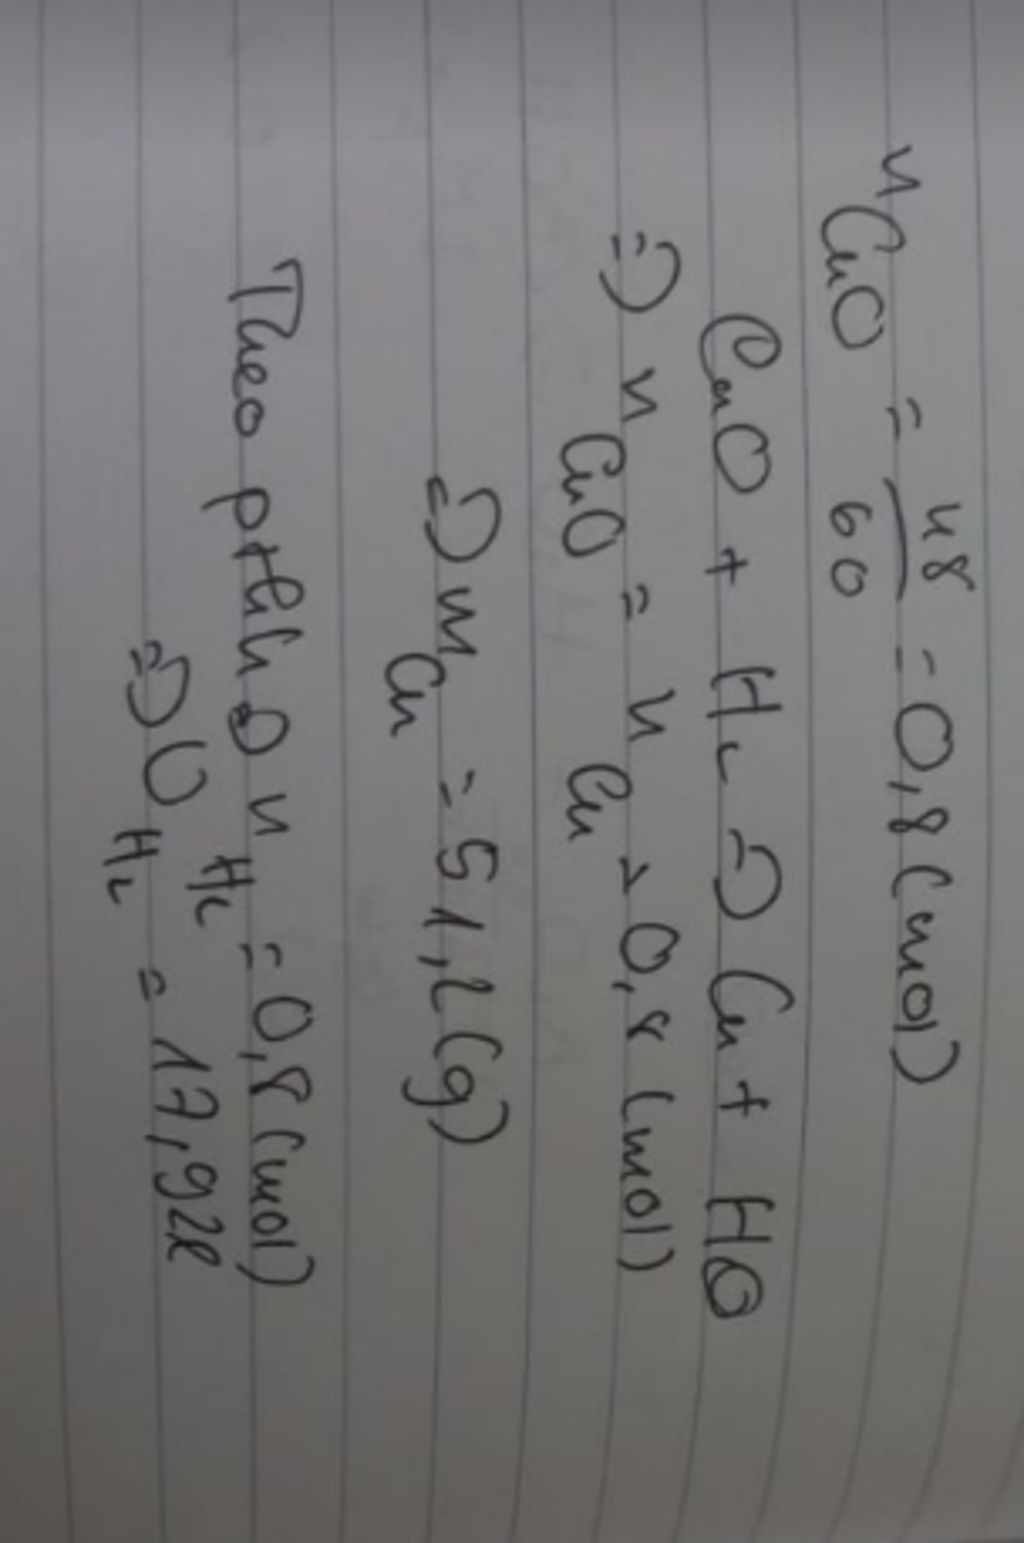 nCuO = 48/60 = 0,8 (mol)
CuO + H2 => Cu + HO
=> nCuO = nCu = 0,8 (mol)
=> mCu = 51,2 (g)
Theo pthh => nH2 = 0,8 (mol)
=> VH2 = 17,92l